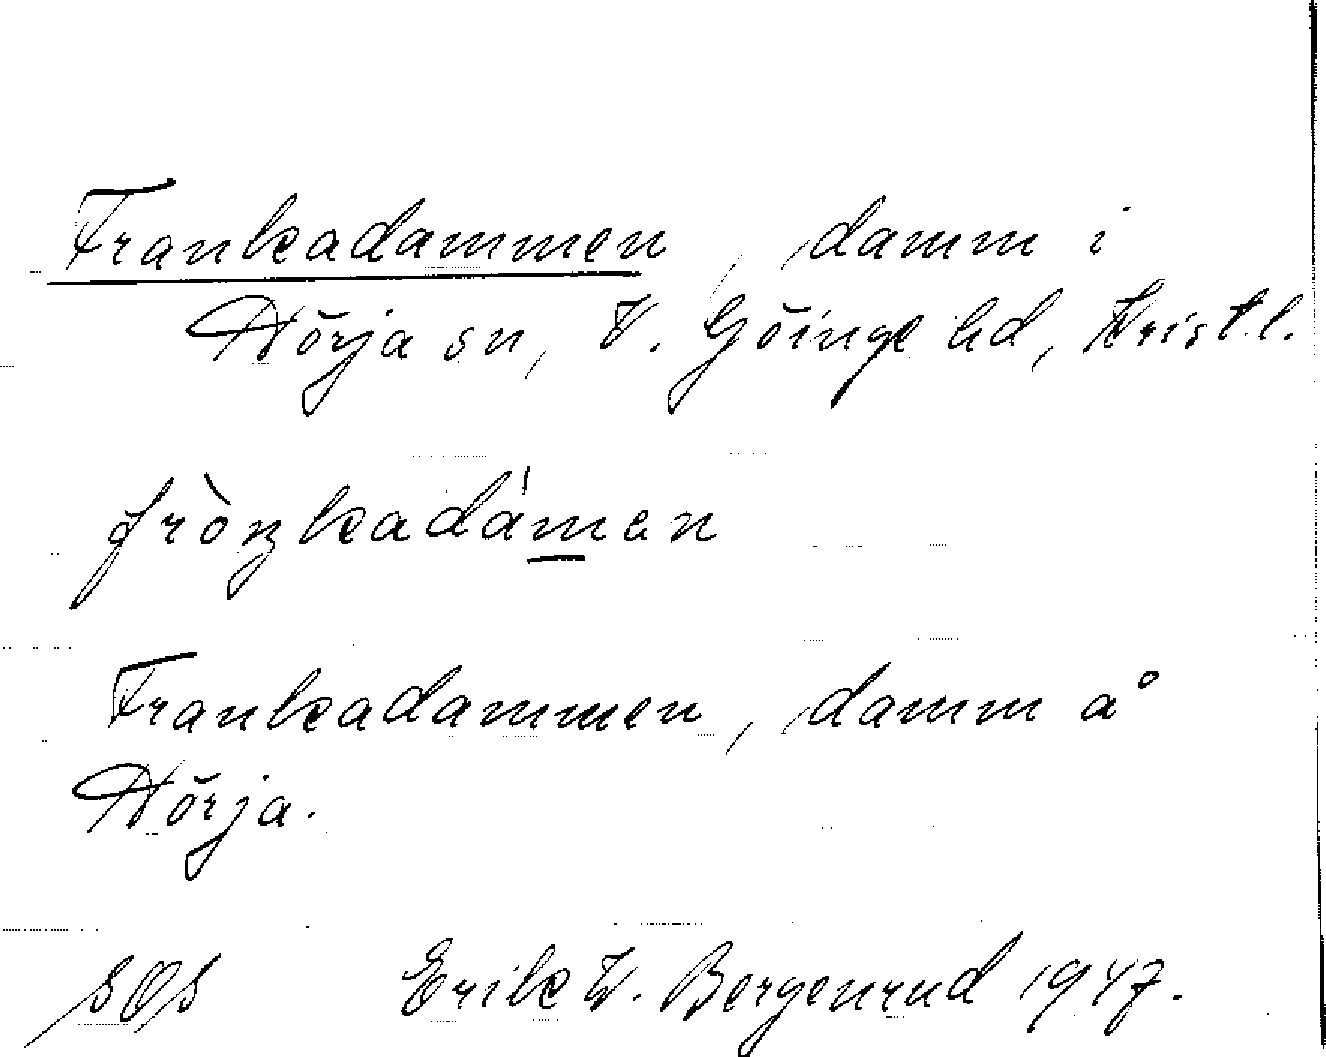 Frankadammen, damm i
Nörja sn, V. Göinge hd, Kristl.
fròŋkadámen
Frankadammen, damm å
Nörja.
SOS Erik W. Bergenrud 1947.